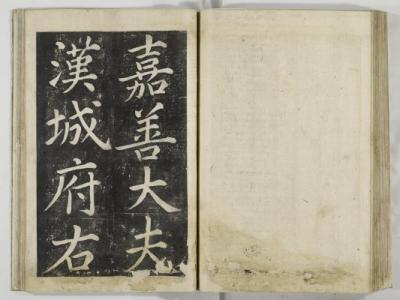 嘉善大夫
漢城府右